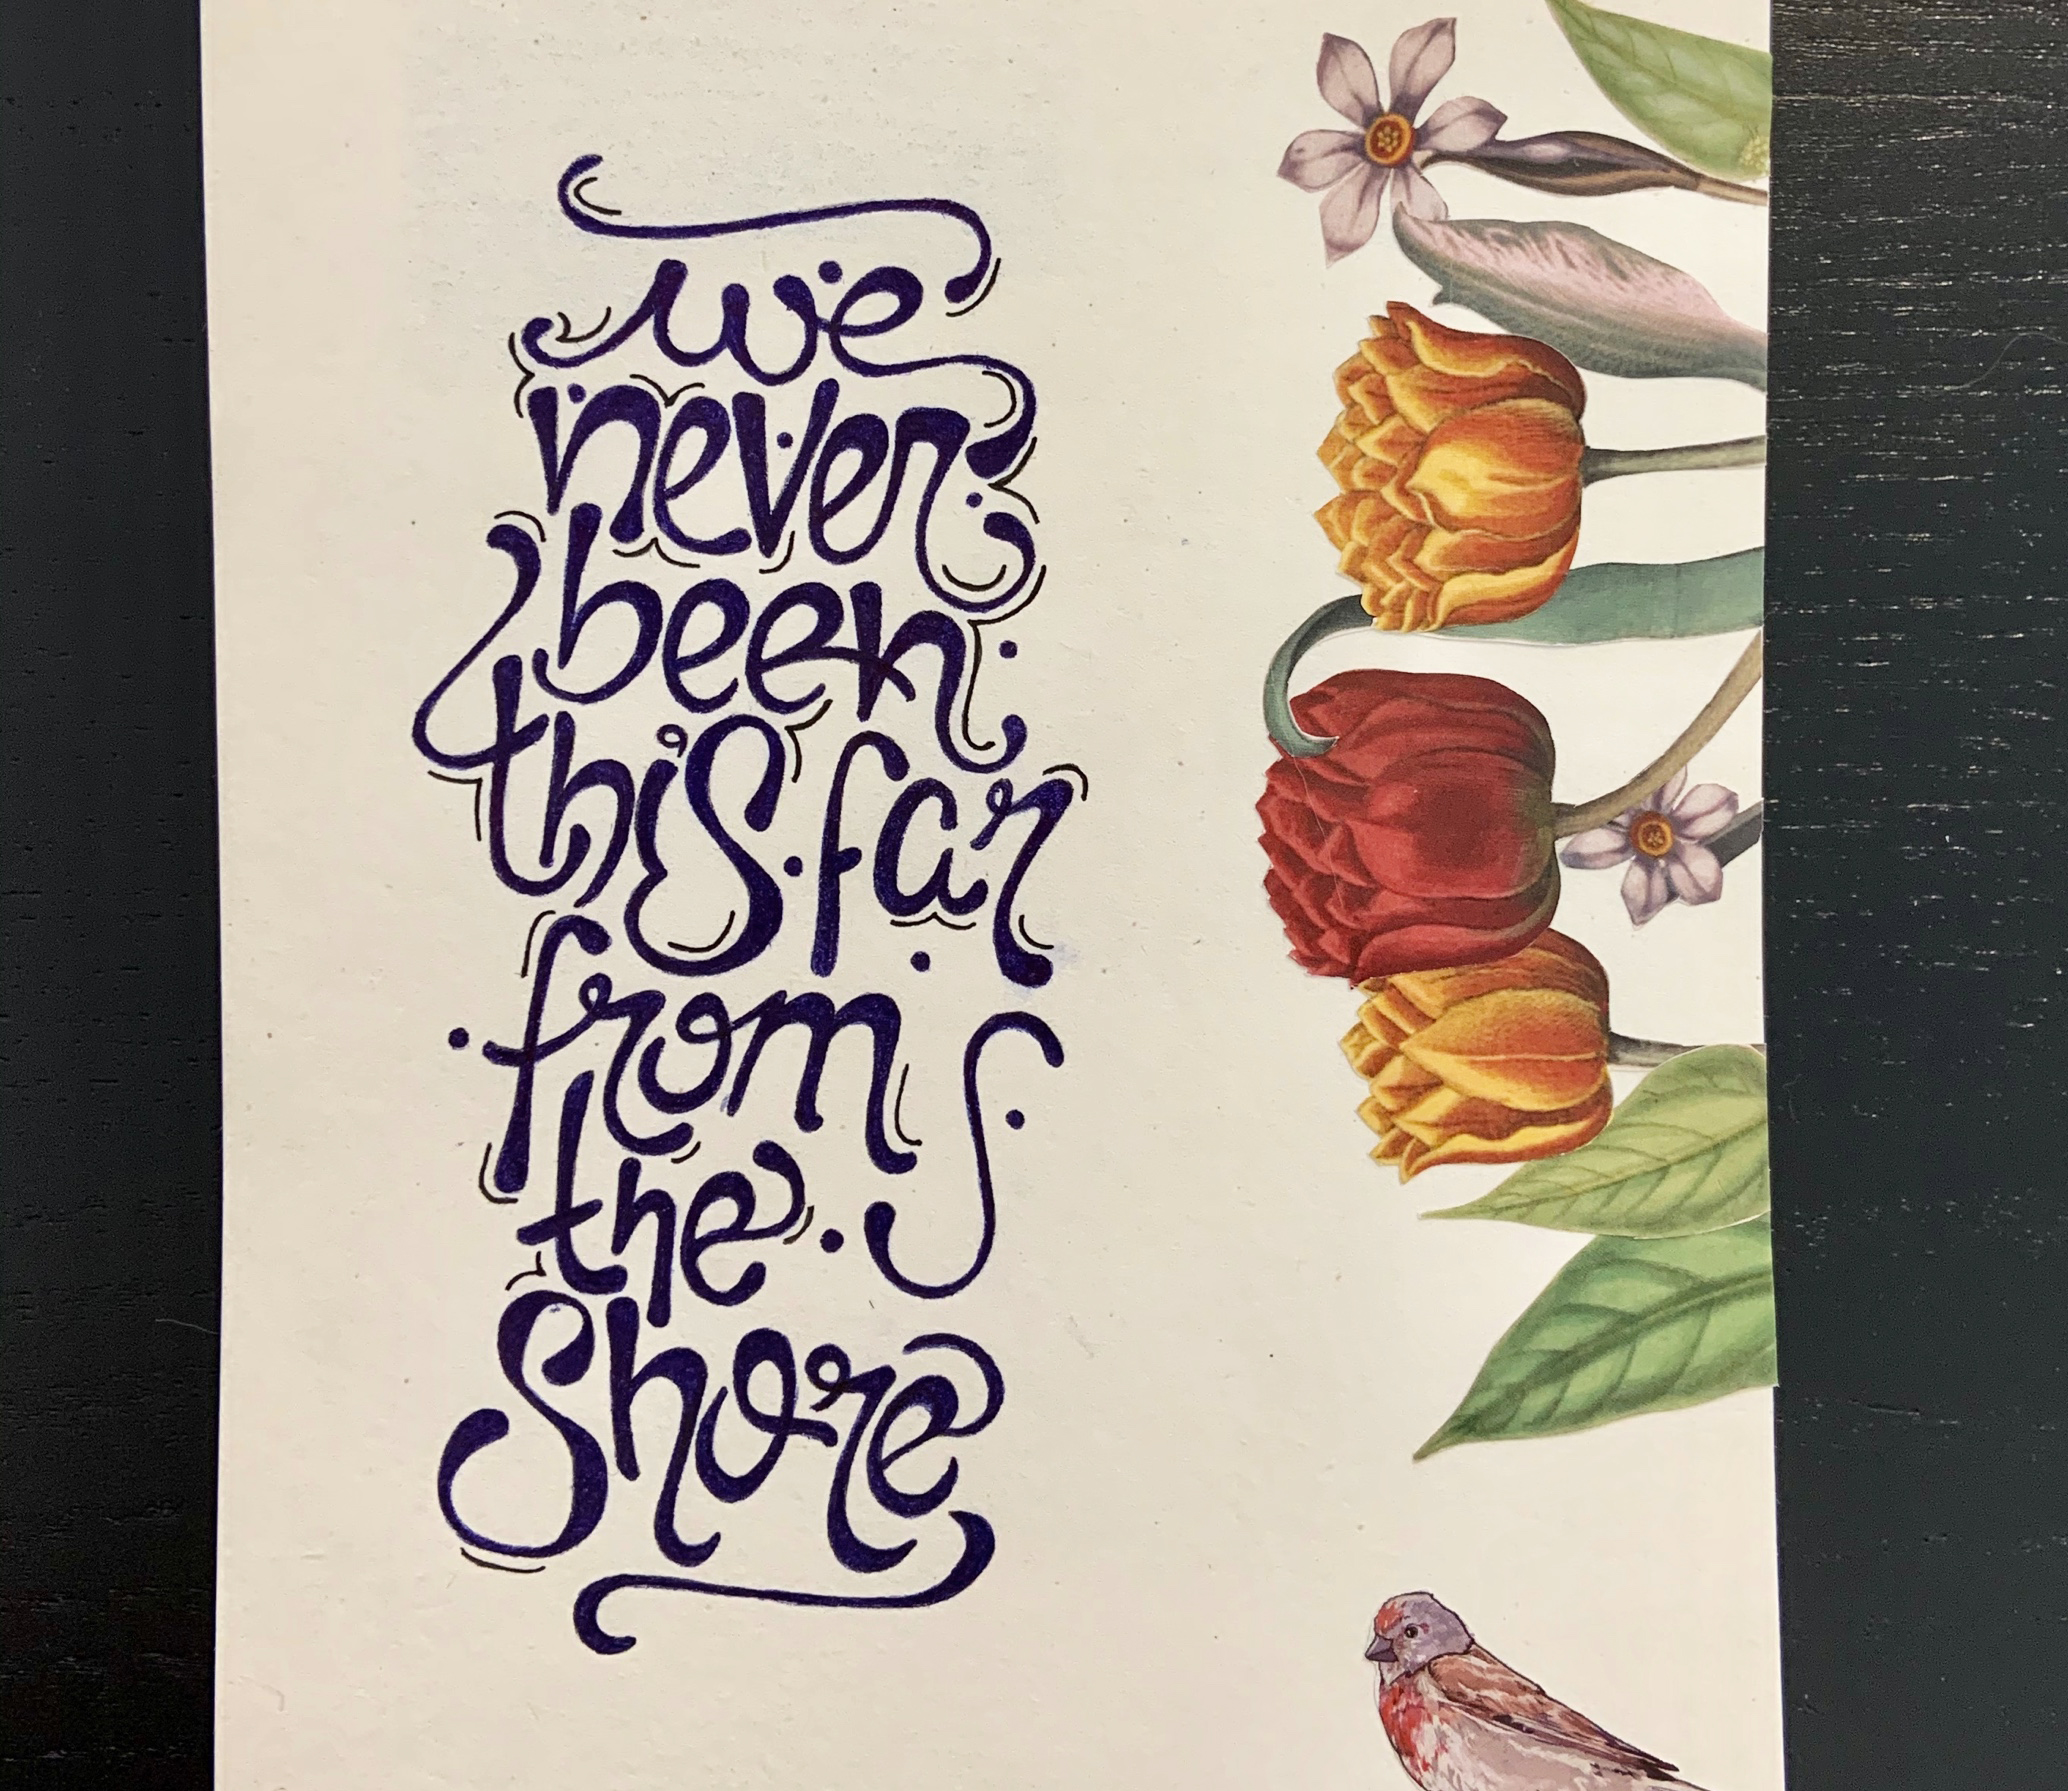 we
never
been
this far
from
the
Shore